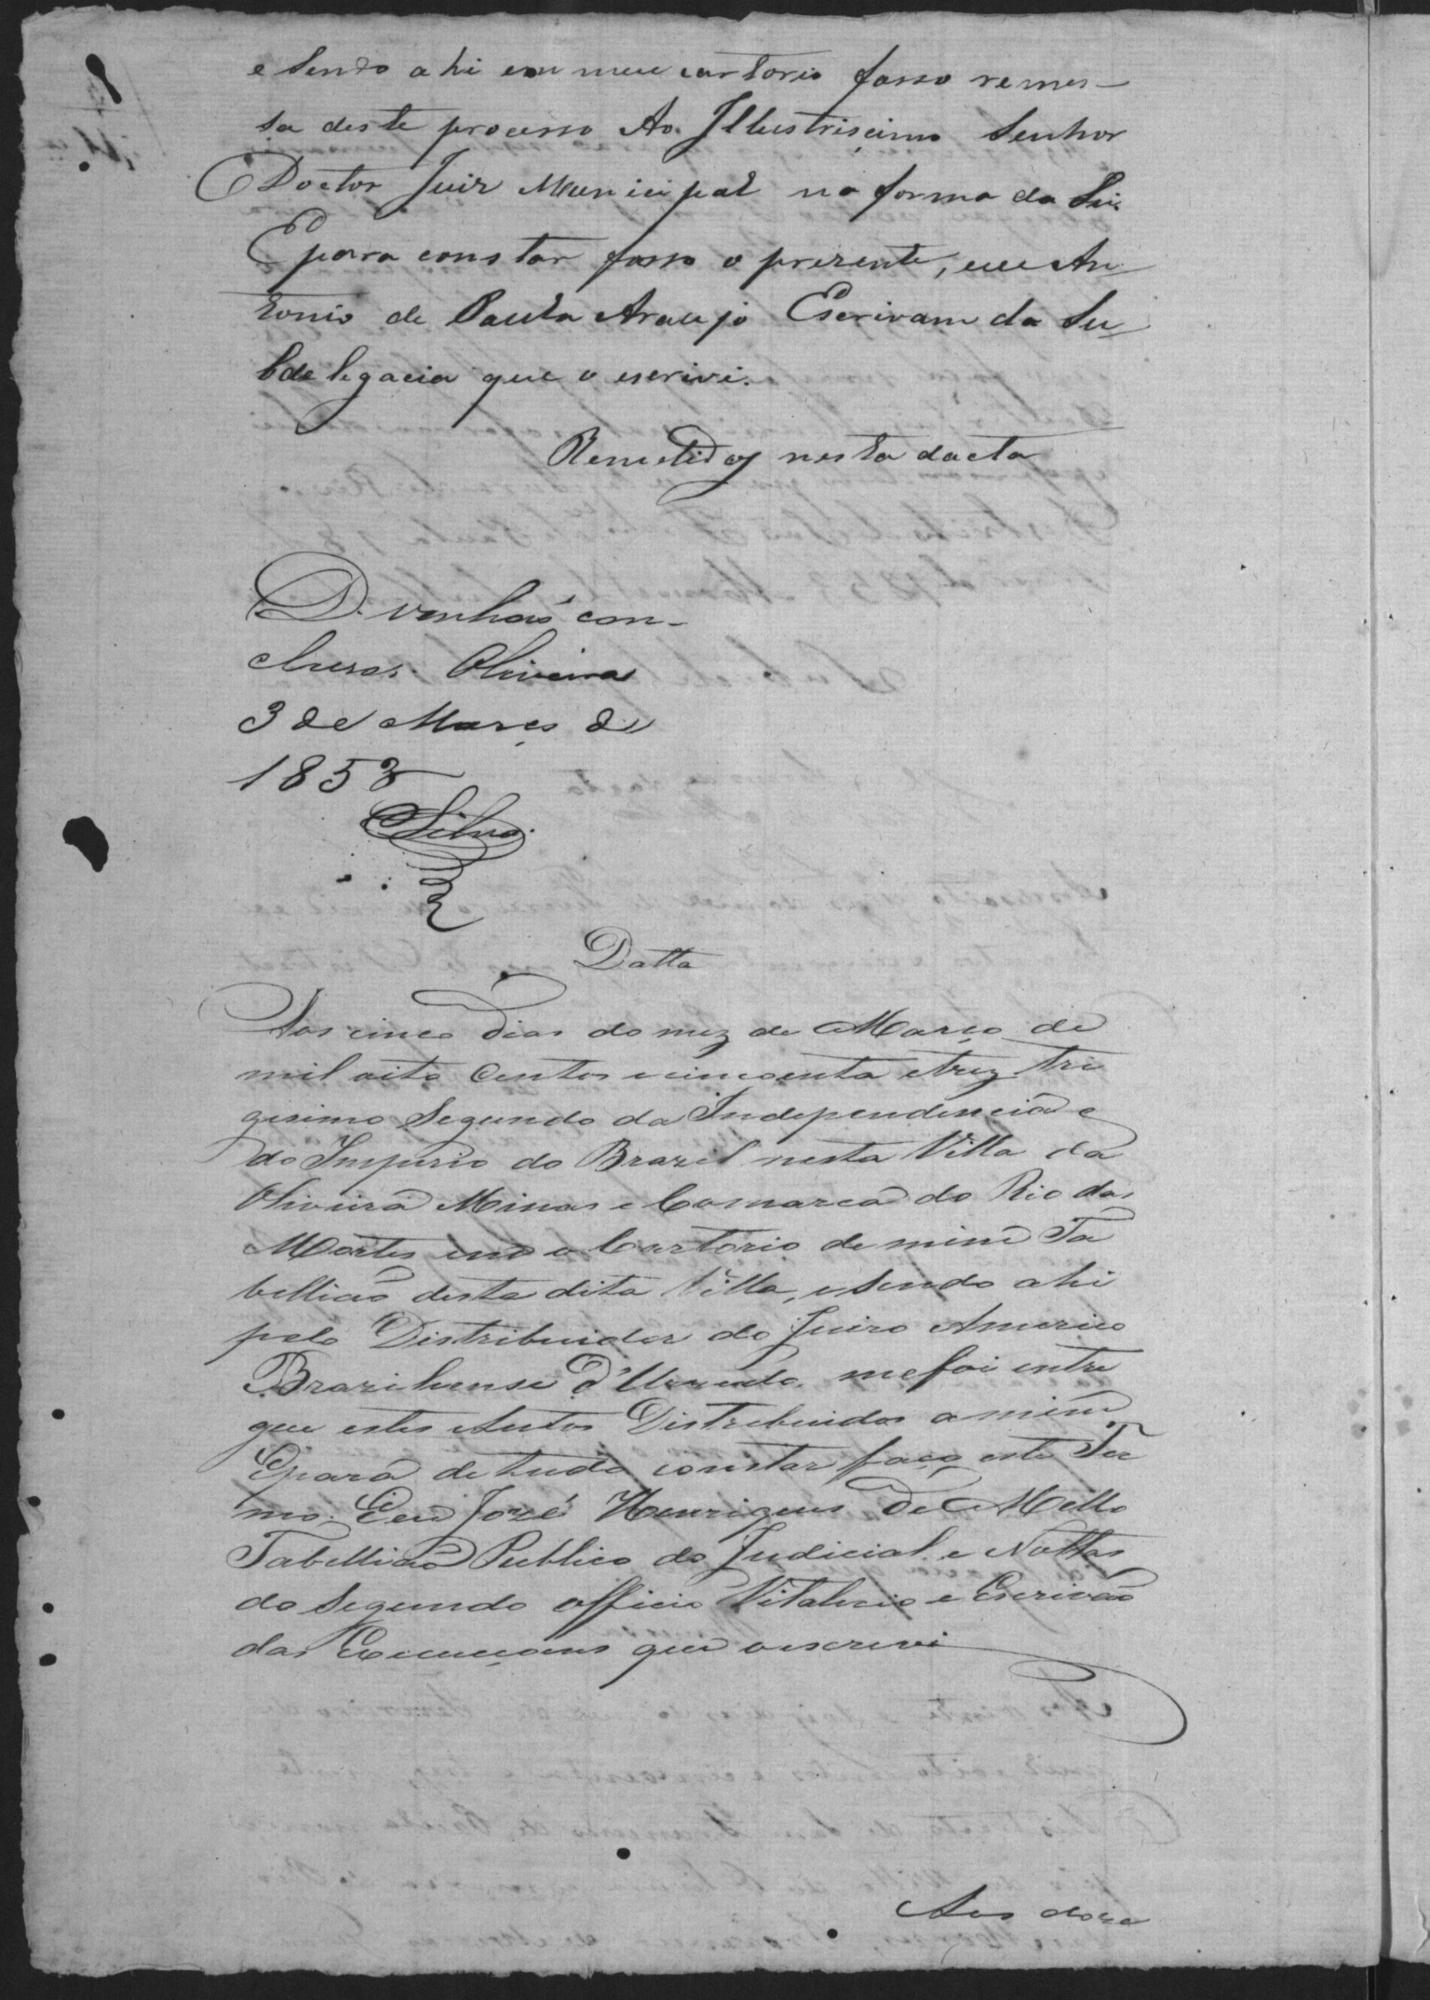 e sendo ahi em meu cartorio fasso remes-
sa deste processo Ao Illustriscimo Senhor
Doctor Juiz Municipal na forma da Lei.
E para constar fasso o prezente, eu An-
tonio de Paula Araujo Escrivam da Su-
bdelegacia que o escrivi.
Remetidos nesta dacta
D. venhaõ con-
clusos. Oliveira
3 de Março de
1853
Silva.
Datta
Aos cinco dias do mez de Março de
mil oito centos e cincoenta e trez tri
gesimo Segundo da Independencia e
do Imperio do Brazil nesta Villa da
Oliveira Minas e Comarca do Rio das
Mortes em o Cartorio de mim Ta
belliaõ desta dita Villa, e sendo ahi
pelo Distribuidor do Juizo Americo
Braziliense d' me foi entre
gue estes Autos Distribuidos a mim
E para de tudo constar faço este Ter
mo. Eu José Henriques de Mello
Tabelliaõ Publico do Judicial e Nottas
do Segundo officio Vitalicio e Escrivaõ
das Execuçoens que o escrevi
Aos doze